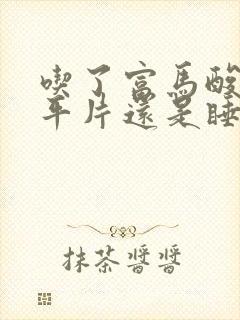 喫了富馬酸
平片還是睡
抹茶醬醬